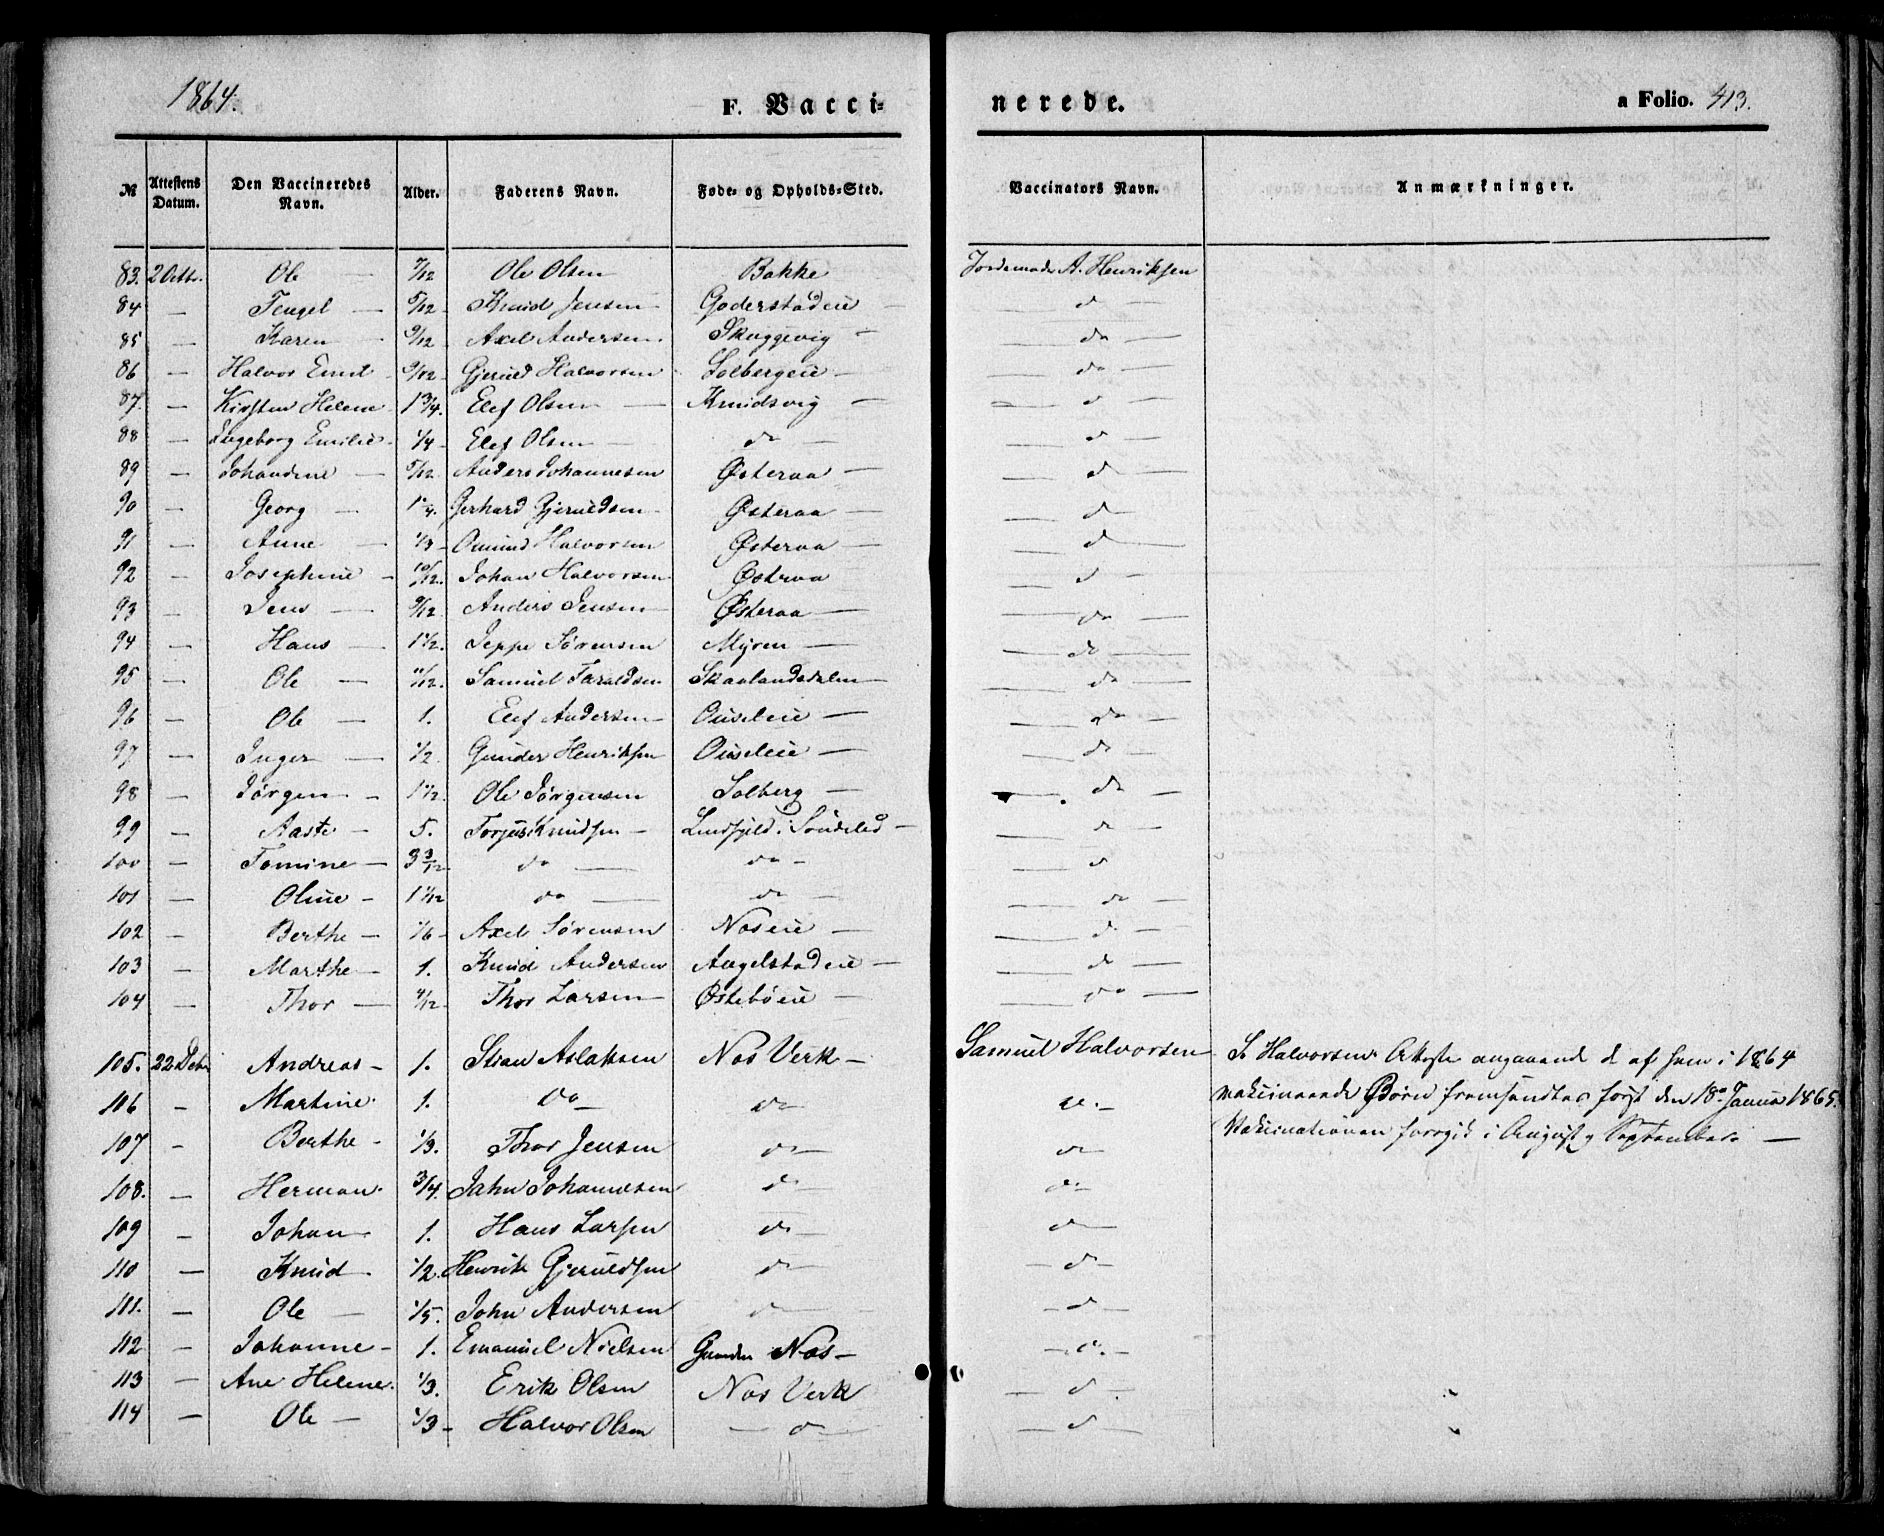 1864. F. Vacci- nerede. a Folio. 413.
№ Attestens Datum. Den Vaccineredes Navn. Alder. Faderens Navn. Føde- og Opholds-Sted. Vaccinators Navn. Anmærkninger.
83. 2 Octb. Ole — 7/12 Ole Olsen Bakke Jordemoder A. Henriksen
84 — Tengel — 5/12 Knud Jensen — Goderstadeie — — d —
85 — Karen — 9/12 Axel Andersen. Skuggevig — — do —
86 — Halvor Emil 9/12 Gjeruld Halvorsen Solbergeie — — do —
87. — Kirsten Helene 1 3/4. Elef Olsen — Knudsvig — — d —
88 — Ingeborg Emilie 1/4 — Elef Olsen — do — — d —
89 — Johandine — 5/12 Anders Johannesen Østeraa — — d
90 — Georg — 1 1/4. Gerhard Gjeruldsen Østeraa — — d —
91 — Anne — 1/3 — Omund Halvorsen Østeraa — — d —
92 — Josephine — 10/12. Johan Halvorsen Østraa — d —
93 — Jens — 9/12 Anders Jensen — Østeraa — — do —
94 — Hans — 1 1/2. Jeppe Sørensen Myren — — do —
95 — Ole — 11/12. Samuel Taraldsen Skaalandsdalen — — do —
96 — Ole — 1. Elef Andersen — Ouseleie — — do —
97 — Inger — 1/2 Gunder Henriksen Ouseleie — — do —
98 — Jørgen — 1 1/2. Ole Jørgensen Solberg — — do —
99 — Aaste — 5. Torjus Knudsen — Lindfjeld i Søndeled — — d —
100 — Tomine — 3 3/12 do — do — — d
101 — Oline — 1 1/12 do — do — — do —
102 — Berthe — 1/6 — Axel Sørensen Noseie — — d. —
103 — Marthe — 1. Knud Andersen Angelstadeie — — do —
104 — Thor — 4/12 — Thor Larsen — Østebøeie — — do —
105. 22 Debr Andreas — 1. Stian Aslaksen Nos Verk — Samuel Halvorsen S. Halvorsens Attest angaaende de af ham i 1864
106 — Martine. 1. Do — do — do. — vakcinerede Børn fremsendtes først den 18de Januar 1865.
107 — Berthe — 1/3. Thor Jensen do — do — Vakcinationen foregik i August og September. —
108. — Herman. 3/4. John Johannesen d — do —
109 — Johan — 1. Hans Larsen do — do —
110 — Knud — 1/2. Henrik Gjeruldsen do — — do —
111. — Ole — 1/5. John Andersen do — — d —
112 — Johanne — 1. Emanuel Nielsen Gunder Nos — — d. —
113 — Ane Helene. 1/3. Erik Olsen Nos Verk — d —
114 — Ole — 1/3 — Halvor Olsen — d — — d —